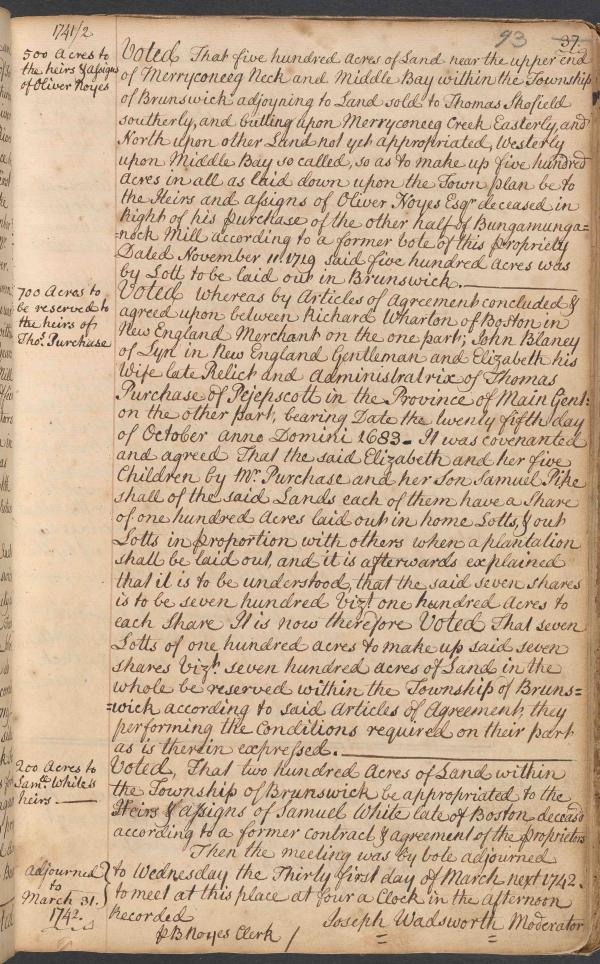 1741/2
93 37
500 Acres to
the heirs & assigns
of Oliver Noyes
Voted That five hundred Acres of Land near the upper end
of Merryconeeg Neck and Middle Bay within the Township
of Brunswick adjoyning to Land sold to Thomas Skofield
southerly, and butting upon Merryconeeg Creek Easterly, and
North upon other Land not yet appropriated, Westerly
upon Middle Bay so called, so as to make up five hundred
Acres in all as laid down upon the Town plan be to
the Heirs and assigns of Oliver Noyes Esqr deceased in
Right of his purchase of the other half of Bungamunga=
=nock Mill according to a former vote of this propriety
Dated November 11. 1719 said five hundred Acres was
by Lott to be laid out in Brunswick.
700 Acres to
be reserved to
the heirs of
Tho: Purchase
Voted Whereas by Articles of Agreement concluded &
agreed upon between Richard Wharton of Boston in
New England Merchant on the one part; John Blaney
of Lyn in New England Gentleman and Elizabeth his
Wife late Relict and Administratrix of Thomas
Purchase of Pejepscott in the Province of Main Gent:
on the other part, bearing Date the twenty fifth day
of October anno Domini 1683. It was covenanted
and agreed That the said Elizabeth and her five
Children by Mr. Purchase and her Son Samuel Pike
shall of the said Lands each of them have a Share
of one hundred Acres laid out in home Lotts, & out
Lotts in proportion with others when a plantation
shall be laid out, and it is afterwards explained
that it is to be understood, that the said seven shares
is to be seven hundred Vizt one hundred Acres to
each share It is now therefore Voted That seven
Lotts of one hundred acres to make up said seven
shares Vizt. seven hundred acres of Land in the
whole be reserved within the Township of Bruns=
=wick according to said Articles of Agreement, they
performing the Conditions required on their part
as is therein expressed.
200 Acres to
Samll. Whites
heirs.
Voted, That two hundred Acres of Land within
the Township of Brunswick be appropriated to the
Heirs & assigns of Samuel White late of Boston deceasd
according to a former contract & agreement of the proprietors
Then the meeting was by vote adjourned
Adjourned
to
March 31.
1742.
to Wednesday the Thirty first day of March next 1742.
to meet at this place at four a Clock in the afternoon
Recorded Joseph Wadsworth Moderator
p B Noyes Clerk